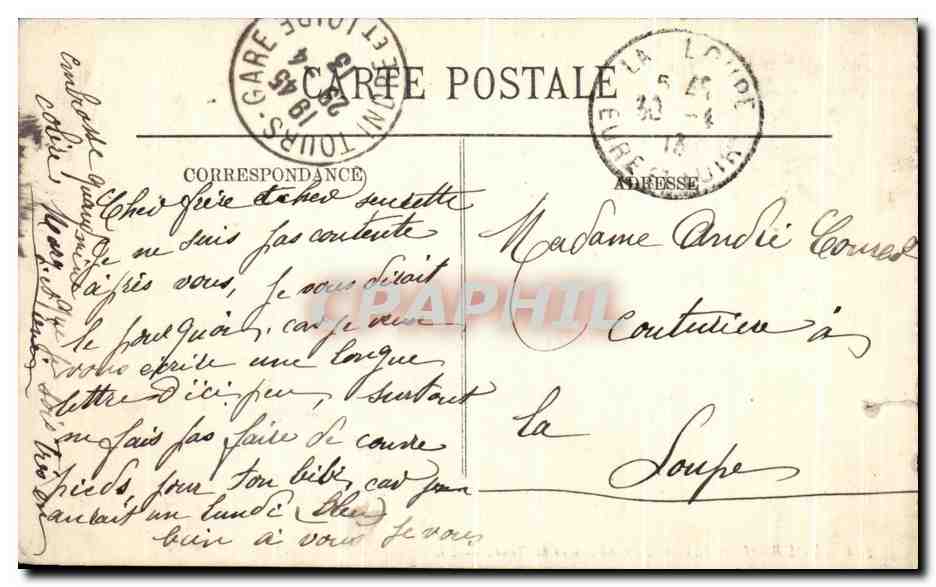 CARTE POSTALE
TOURS-GARE
19 45
29 4
13
INDRE ET LOIRE
LA LOUPE
5 45
30 -4
13
EURE ET LOIR
CORRESPONDANCE
ADRESSE
Cher frère et cher seurette
Je ne suis pas contente
après vous, je vous dirait
le pourquoi, car je veux
vous ecrire une longue
lettre D'ici peu, surtout
ne fais pas faire de couvre
pieds pour ton bibi, car
aurait un lundi Bleu
bien à vous Je vous
embrasse quand même
colère,
Madame André
Couturière à
La
Loupe
CPAPHIL